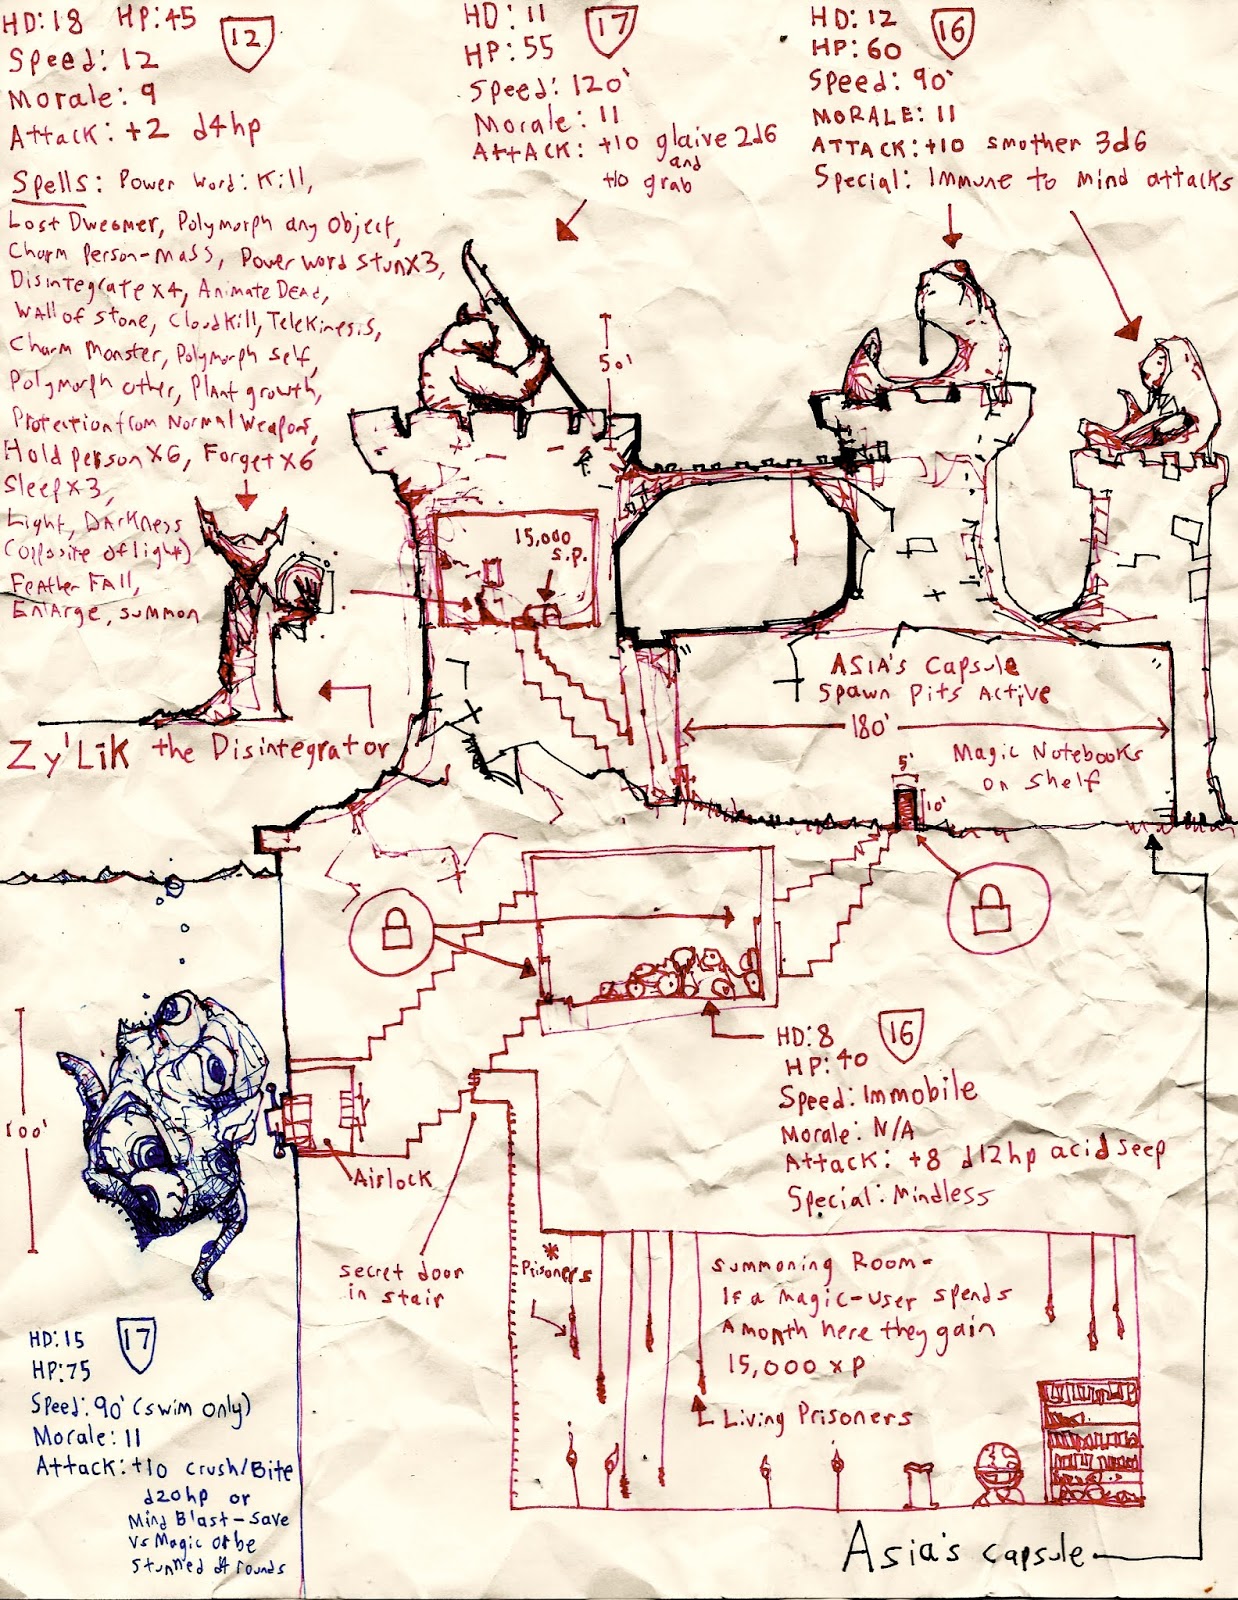 HD:18 HP:45
12
Speed: 12
Morale: 9
Attack: +2 d4hp
Spells: Power Word: Kill,
Lost Dweomer, Polymorph any Object,
Charm Person-Mass, Power Word Stun X3,
Disintegrate x4, Animate Dead,
Wall of Stone, Cloudkill, Telekinesis,
Charm Monster, Polymorph Self,
Polymorph Other, Plant growth,
Protection from Normal Weapons,
Hold Person X6, Forget X6
Sleep X3,
Light, Darkness
(opposite of light)
Feather Fall,
Enlarge, summon
Zy'Lik the Disintegrator
HD: 11
17
HP: 55
Speed: 120'
Morale: 11
Attack: +10 glaive 2d6
and
+10 grab
HD: 12
16
HP: 60
Speed: 90'
MORALE: 11
ATTACK: +10 smother 3d6
Special: Immune to Mind attacks
50'
15,000
s.p.
ASIA's Capsule
Spawn Pits Active
180'
Magic Notebooks
on Shelf
5'
10'
HD: 8
16
HP: 40
Speed: Immobile
Morale: N/A
Attack: +8 d12hp acid seep
Special: Mindless
100'
Airlock
secret door
in stair
* Prisoners
Summoning Room-
If a magic-user spends
A month here they gain
15,000 xp
Living Prisoners
HD: 15
17
HP: 75
Speed: 90' (swim only)
Morale: 11
Attack: +10 crush/Bite
d20hp or
Mind Blast - Save
vs Magic or be
stunned d4 rounds
Asia's capsule